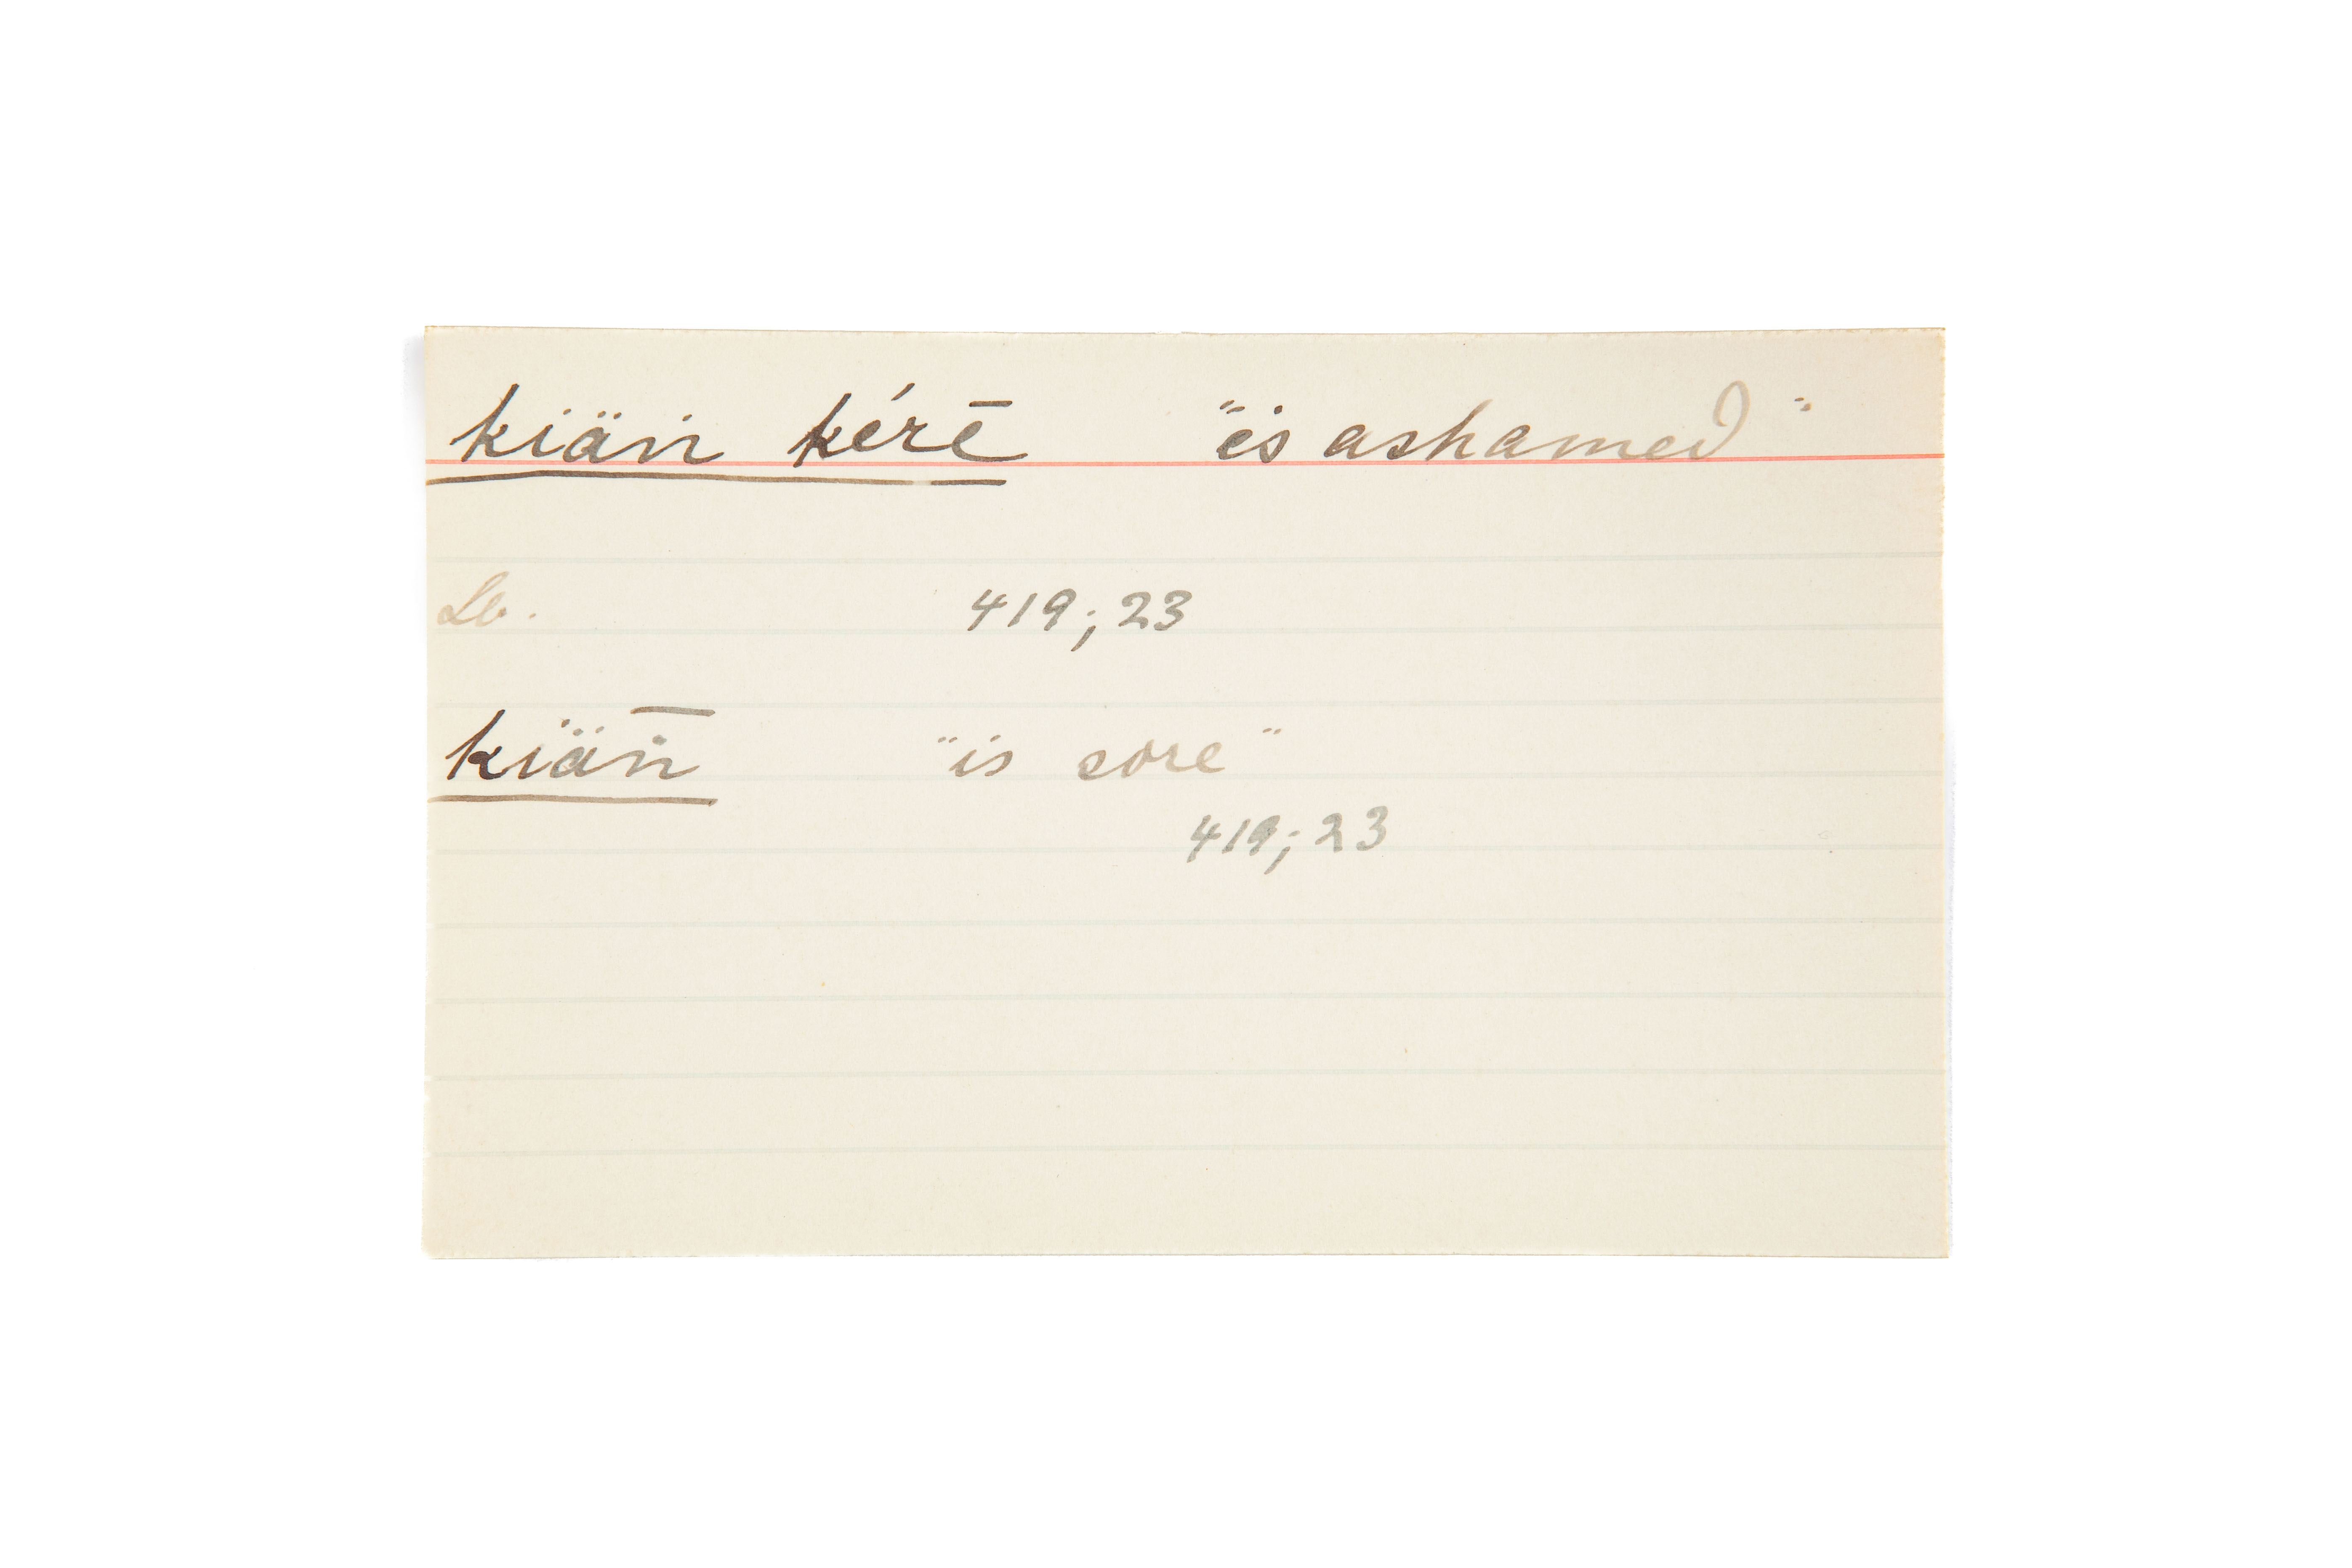 kiäṅ kérē "is ashamed"
Lb. 419; 23
kiäṅ̄ "is sore"
419; 23